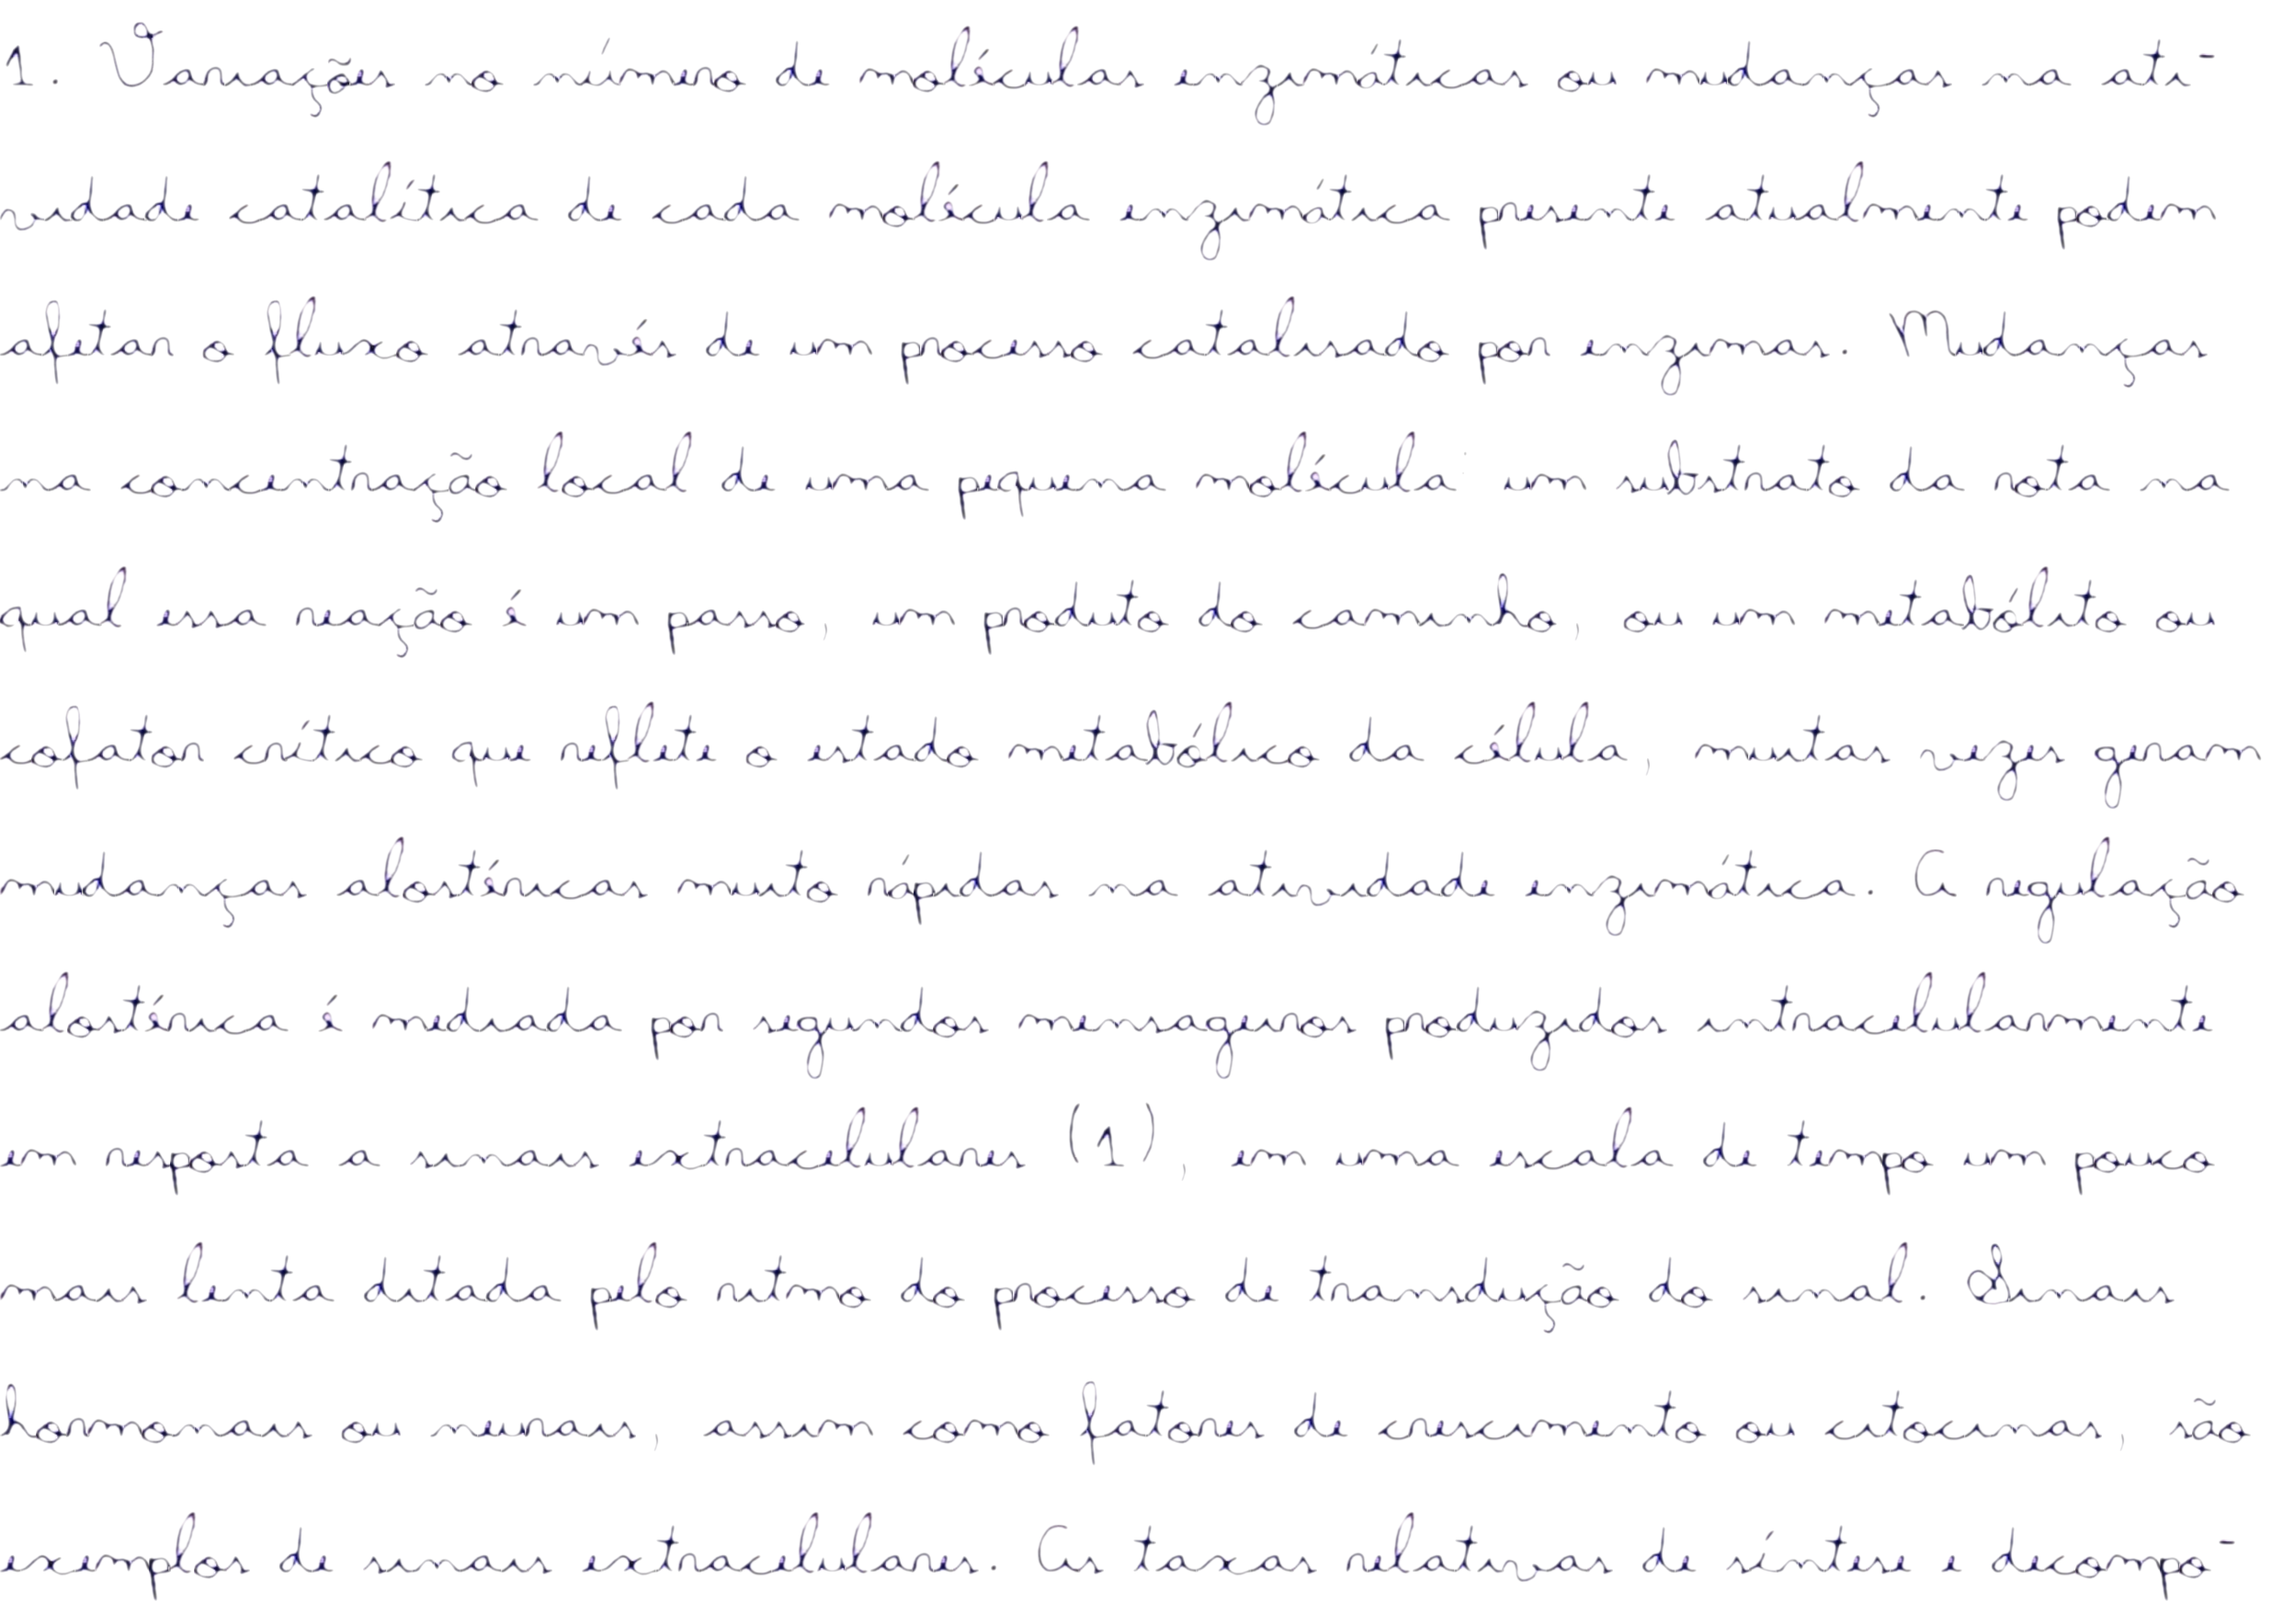 1. Variações no número de moléculas enzimáticas ou mudanças na ati-
vidade catalítica de cada molécula enzimática presente atualmente podem
afetar o fluxo através de um processo catalisado por enzimas. Mudanças
na concentração local de uma pequena molécula: um substrato da rota na
qual essa reação é um passo, um produto do caminho, ou um metabólito ou
cofator crítico que reflete o estado metabólico da célula, muitas vezes geram
mudanças alostéricas muito rápidas na atividade enzimática. A regulação
alostérica é mediada por segundos mensageiros produzidos intracelularmente
em resposta a sinais extracelulares (1), em uma escala de tempo um pouco
mais lenta ditada pelo ritmo do processo de transdução do sinal. Sinais
hormonais ou neurais, assim como fatores de crescimento ou citocinas, são
exemplos de sinais extracelulares. As taxas relativas de síntese e decompo-